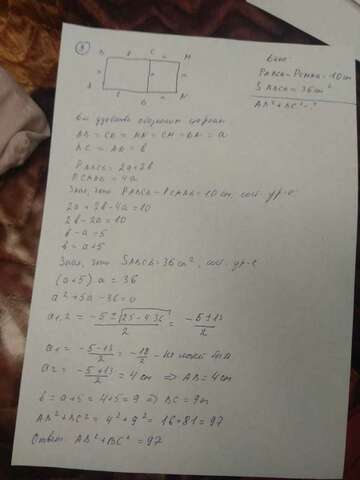 ③
B b C M
A b D N
Дано:
PABCD - PCMND = 10 cm
SABCD = 36 cm²
AB² + BC² - ?
обозначим стороны
AB = CD = MN = CM = DN = a
BC = AD = b
PABCD = 2a + 2b
PCMND = 4a
Зная, что PABCD - PCMND = 10 cm, сост. ур-е
2a + 2b - 4a = 10
2b - 2a = 10
b - a = 5
b = a + 5
Зная, что SABCD = 36 cm², сост. ур-е
(a + 5) · a = 36
a² + 5a - 36 = 0
a1,2 = -5 ± √25 - 4·36 / 2 = -5 ± 13 / 2
a1 = -5 - 13 / 2 = -18 / 2 - не может
a2 = -5 + 13 / 2 = 4 cm ⇒ AB = 4 cm
b = a + 5 = 4 + 5 = 9 ⇒ BC = 9 cm
AB² + BC² = 4² + 9² = 16 + 81 = 97
Ответ: AB² + BC² = 97